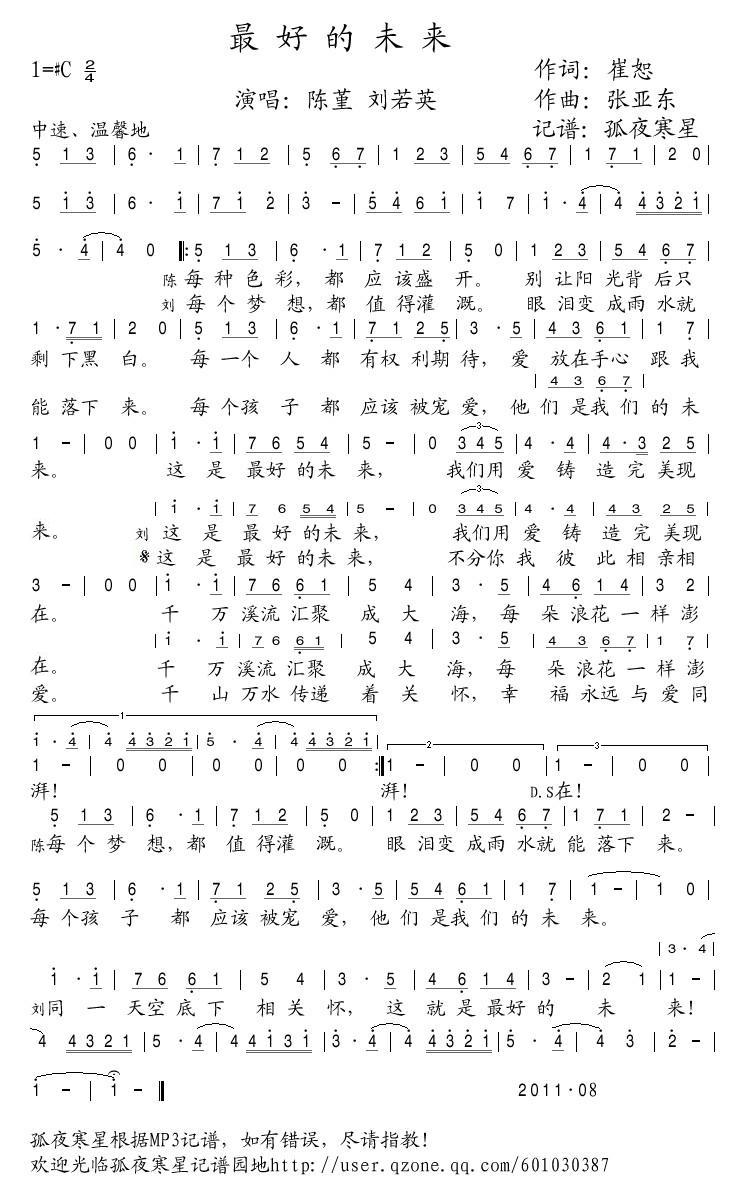 最好的未来
1=#C 2/4
作词：崔恕
演唱：陈堇 刘若英
作曲：张亚东
中速、温馨地
记谱：孤夜寒星
5 1 3 | 6 · 1 | 7 1 2 | 5 6 7 | 1 2 3 | 5 4 6 7 | 1 7 1 | 2 0 |
5 1 3 | 6 · 1 | 7 1 2 | 3 - | 5 4 6 1 | 1 7 | 1 · 4 | 4 4 3 2 1 |
5 · 4 | 4 0 ‖: 5 1 3 | 6 · 1 | 7 1 2 | 5 0 | 1 2 3 | 5 4 6 7 |
陈每种色彩，都应该盛开。 别让阳光背后只
刘每个梦想，都值得灌溉。 眼泪变成雨水就
1 · 7 1 | 2 0 | 5 1 3 | 6 · 1 | 7 1 2 5 | 3 · 5 | 4 3 6 1 | 1 7 |
剩下黑白。 每一个人都有权利期待，爱放在手心跟我
| 4 3 6 7 |
能落下来。 每个孩子都应该被宠爱，他们是我们的未
1 - | 0 0 | 1 · 1 | 7 6 5 4 | 5 - | 0 3 4 5 | 4 · 4 | 4 · 3 2 5 |
来。 这是最好的未来， 我们用爱铸造完美现
| 1 · 1 | 7 6 5 4 | 5 - | 0 3 4 5 | 4 · 4 | 4 3 2 5 |
来。 刘这是最好的未来， 我们用爱铸造完美现
※这是最好的未来， 不分你我彼此相亲相
3 - | 0 0 | 1 · 1 | 7 6 6 1 | 5 4 | 3 · 5 | 4 6 1 4 | 3 2 |
在。 千万溪流汇聚成大海，每朵浪花一样澎
| 1 · 1 | 7 6 6 1 | 5 4 | 3 · 5 | 4 3 6 7 | 1 7 |
在。 千万溪流汇聚成大海，每朵浪花一样澎
爱。 千山万水传递着关怀，幸福永远与爱同
1
1 · 4 | 4 4 3 2 1 | 5 · 4 | 4 4 3 2 1 |
2 3
1 - | 0 0 | 0 0 | 0 0 :‖ 1 - | 0 0 | 1 - | 0 0 |
湃！ 湃！ D.S在！
5 1 3 | 6 · 1 | 7 1 2 | 5 0 | 1 2 3 | 5 4 6 7 | 1 7 1 | 2 - |
陈每个梦想，都值得灌溉。 眼泪变成雨水就能落下来。
5 1 3 | 6 · 1 | 7 1 2 5 | 3 · 5 | 5 4 6 1 | 1 7 | 1 - | 1 0 |
每个孩子都应该被宠爱，他们是我们的未来。
| 3 · 4 |
1 · 1 | 7 6 6 1 | 5 4 | 3 · 5 | 4 6 4 | 3 - | 2 1 | 1 - |
刘同一天空底下相关怀，这就是最好的未来！
4 4 3 2 1 | 5 · 4 | 4 4 1 3 1 | 3 · 4 | 4 4 3 2 1 | 5 · 4 | 4 3 | 2 - |
1 - | 1 - ‖ 2011·08
孤夜寒星根据MP3记谱，如有错误，尽请指教！
欢迎光临孤夜寒星记谱园地http://user.qzone.qq.com/601030387